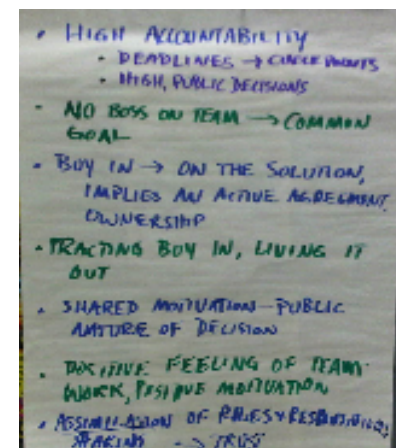 • HIGH ACCOUNTABILITY
• DEADLINES → CHECK POINTS
• HIGH, PUBLIC DECISIONS
- NO BOSS ON TEAM → COMMON
GOAL
• BUY IN → ON THE SOLUTION,
IMPLIES AN ACTIVE AGREEMENT,
OWNERSHIP
• TRACTING BUY IN, LIVING IT
OUT
• SHARED MOTIVATION - PUBLIC
NATURE OF DECISION
• POSITIVE FEELING OF TEAM-
WORK, POSITIVE MOTIVATION
• ASSIMILATION OF ROLES +
→ TRUST